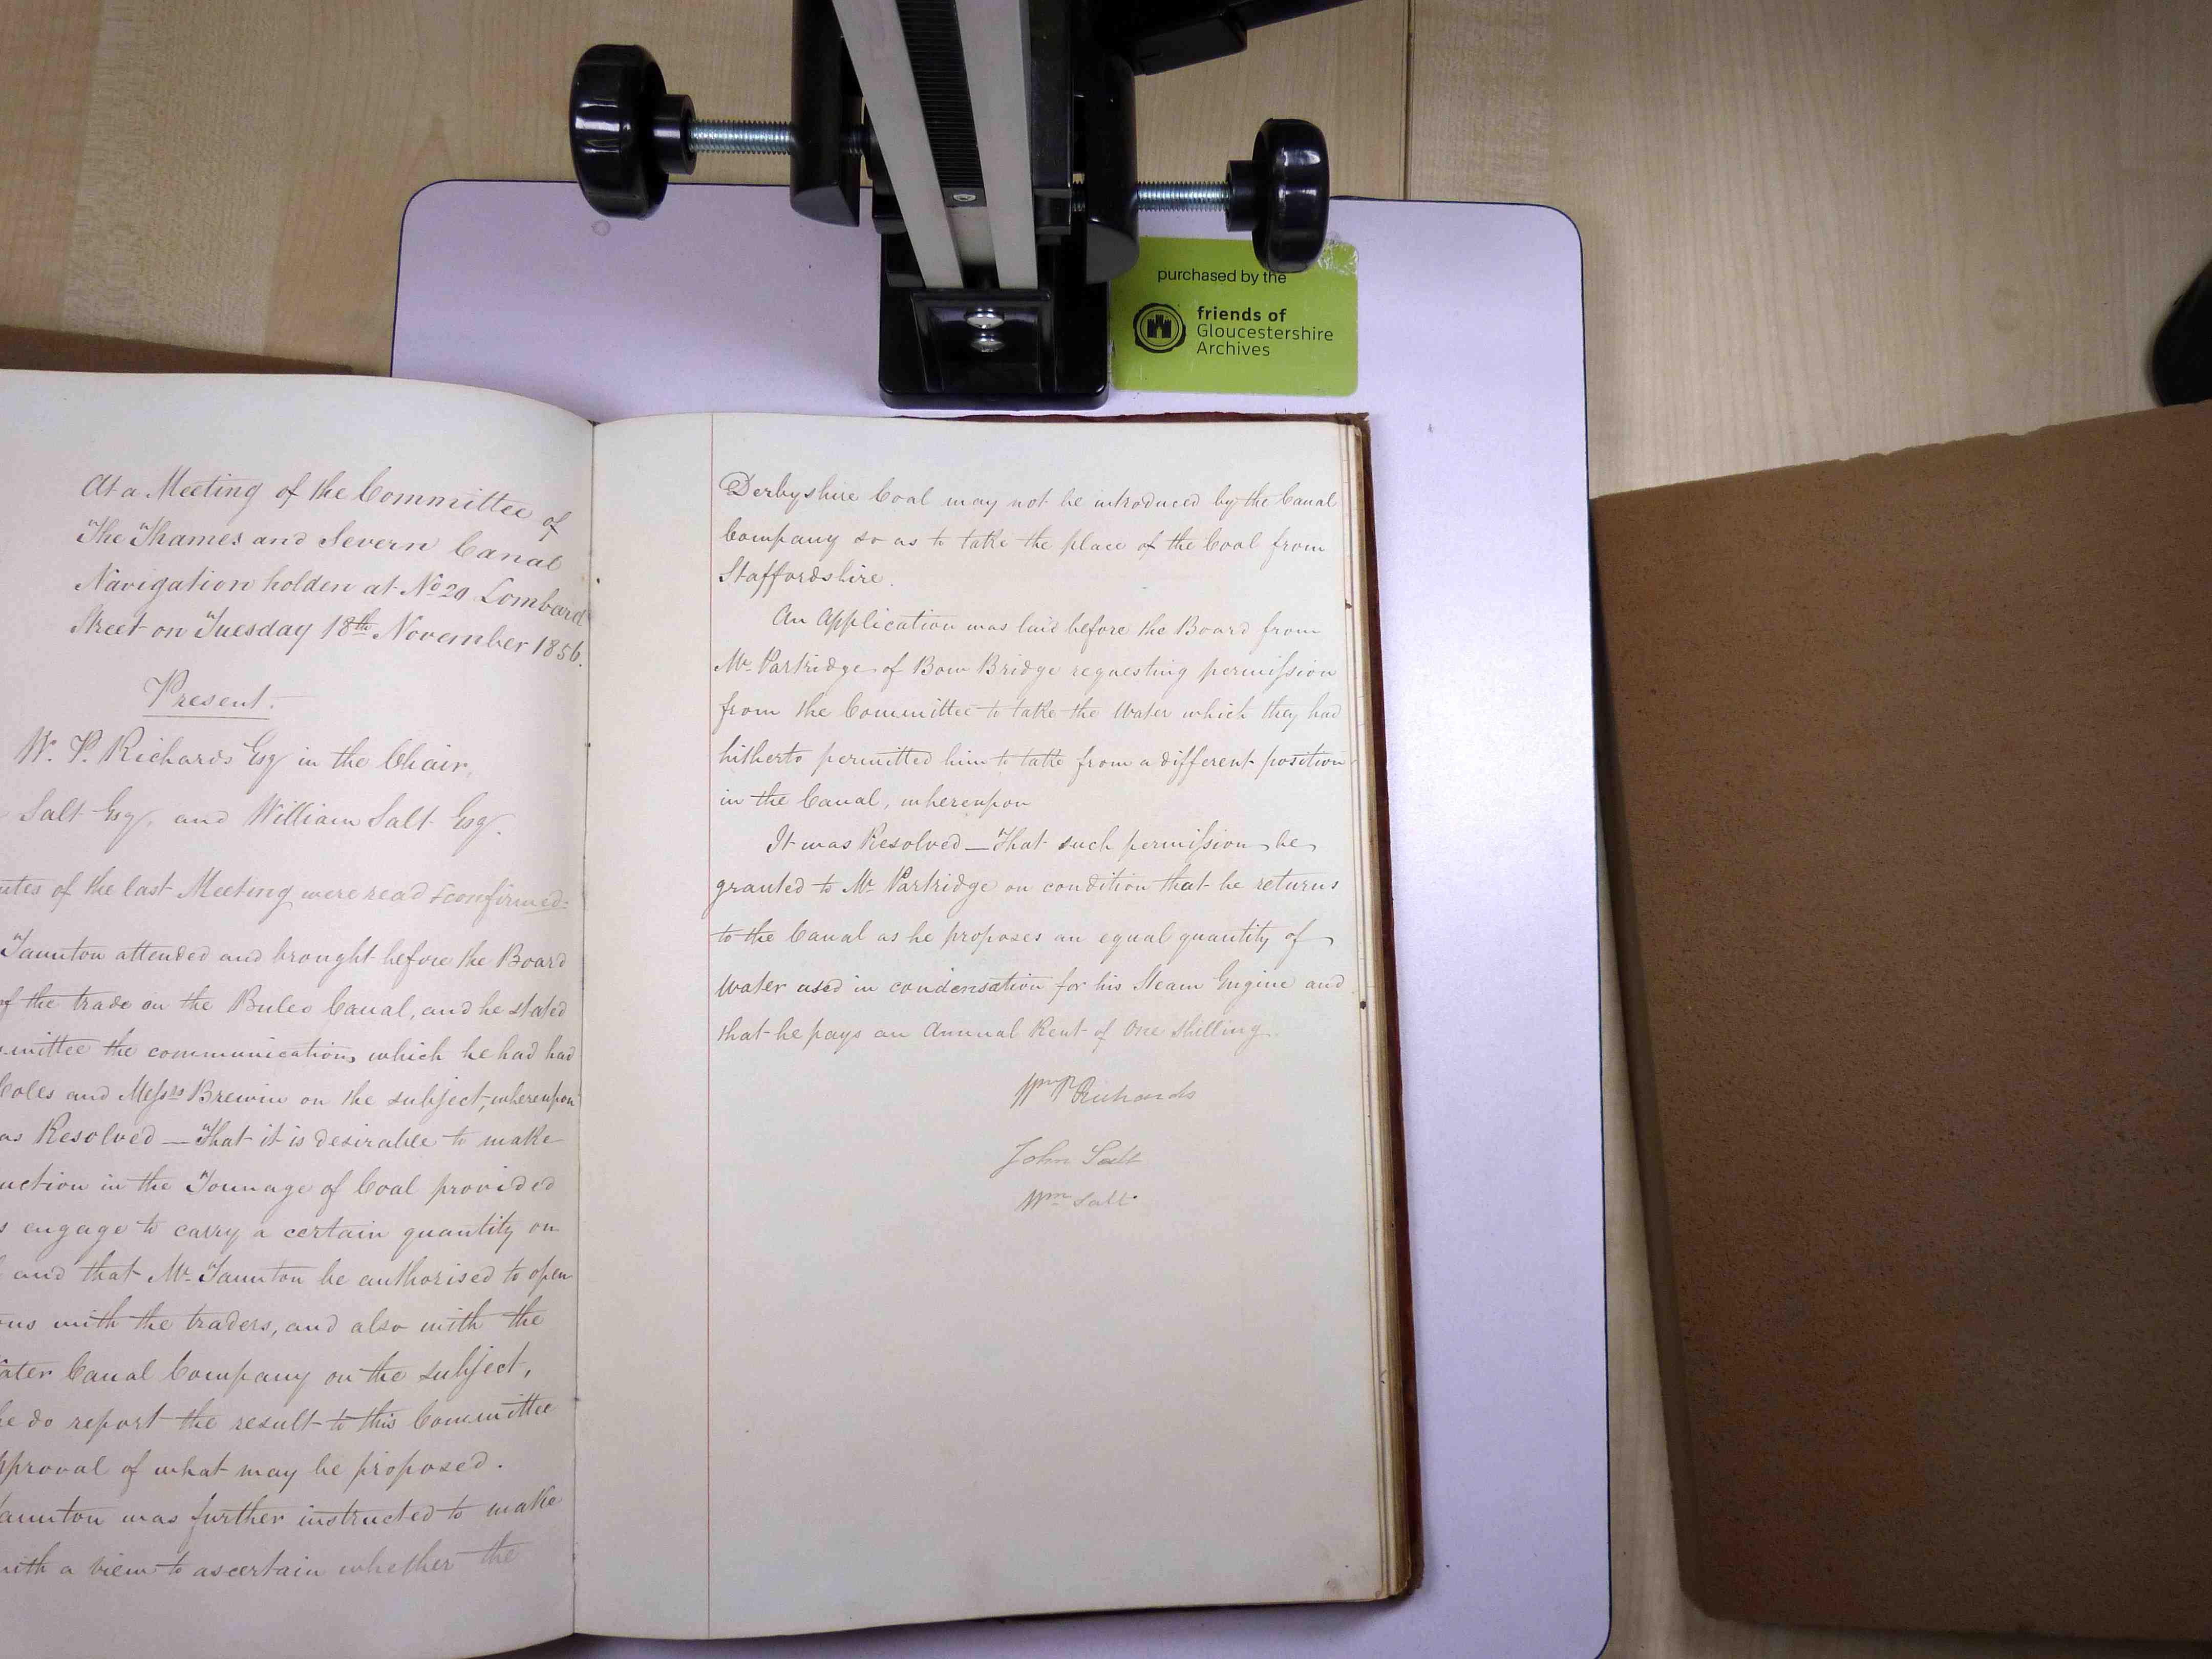 At a Meeting of the Committee of
The Thames and Severn Canal
Navigation holden at No 20 Lombard
Street on Tuesday 18th November 1856.
Present.
W. P. Richards Esq in the Chair,
Salt Esq, and William Salt Esq.
utes of the last Meeting were read & confirmed.
Taunton attended and brought before the Board
of the trade on the Canal, and he stated
mittee the communications which he had had
Coles and Messrs Brewin on the subject, whereupon
as Resolved — That it is desirable to make
uction in the Tonnage of Coal provided
s engage to carry a certain quantity on
and that Mr. Taunton be authorised to open
ons with the traders, and also with the
ater Canal Company on the subject,
he do report the result to this Committee
pproval of what may be proposed.
aunton was further instructed to make
with a view to ascertain whether the
Derbyshire Coal may not be introduced by the Canal
Company so as to take the place of the Coal from
Staffordshire.
An Application was laid before the Board from
Mr. Partridge of Bow Bridge requesting permission
from the Committee to take the Water which they had
hitherto permitted him to take from a different position
in the Canal, whereupon
It was Resolved — That such permission be
granted to Mr Partridge on condition that he returns
to the Canal as he proposes an equal quantity of
Water used in condensation for his Steam Engine and
that he pays an Annual Rent of One Shilling.
Wm P Richards
John Salt
Wm Salt
purchased by the
friends of
Gloucestershire
Archives